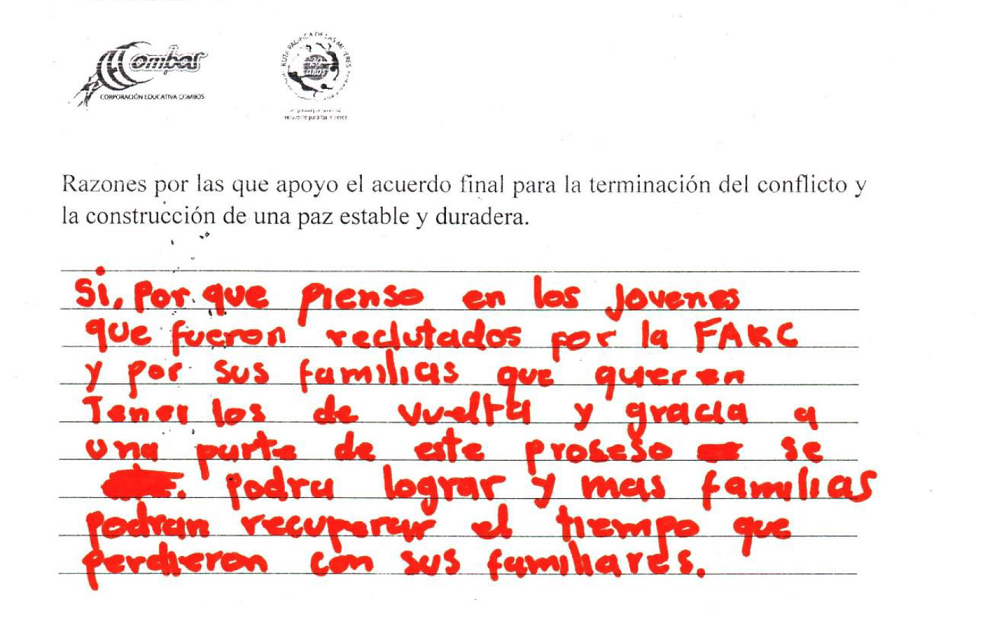 Combos
CORPORACIÓN EDUCATIVA COMBOS
RUTA PACÍFICA DE LAS MUJERES
Razones por las que apoyo el acuerdo final para la terminación del conflicto y
la construcción de una paz estable y duradera.
Si, Por que pienso en los jovenes
que fueron reclutados por la FARC
y por sus familias que quieren
Tener los de vuelta y gracia a
una parte de este proseso se
podra lograr y mas familias
podran recuperar el tiempo que
perdieron con sus familiares.